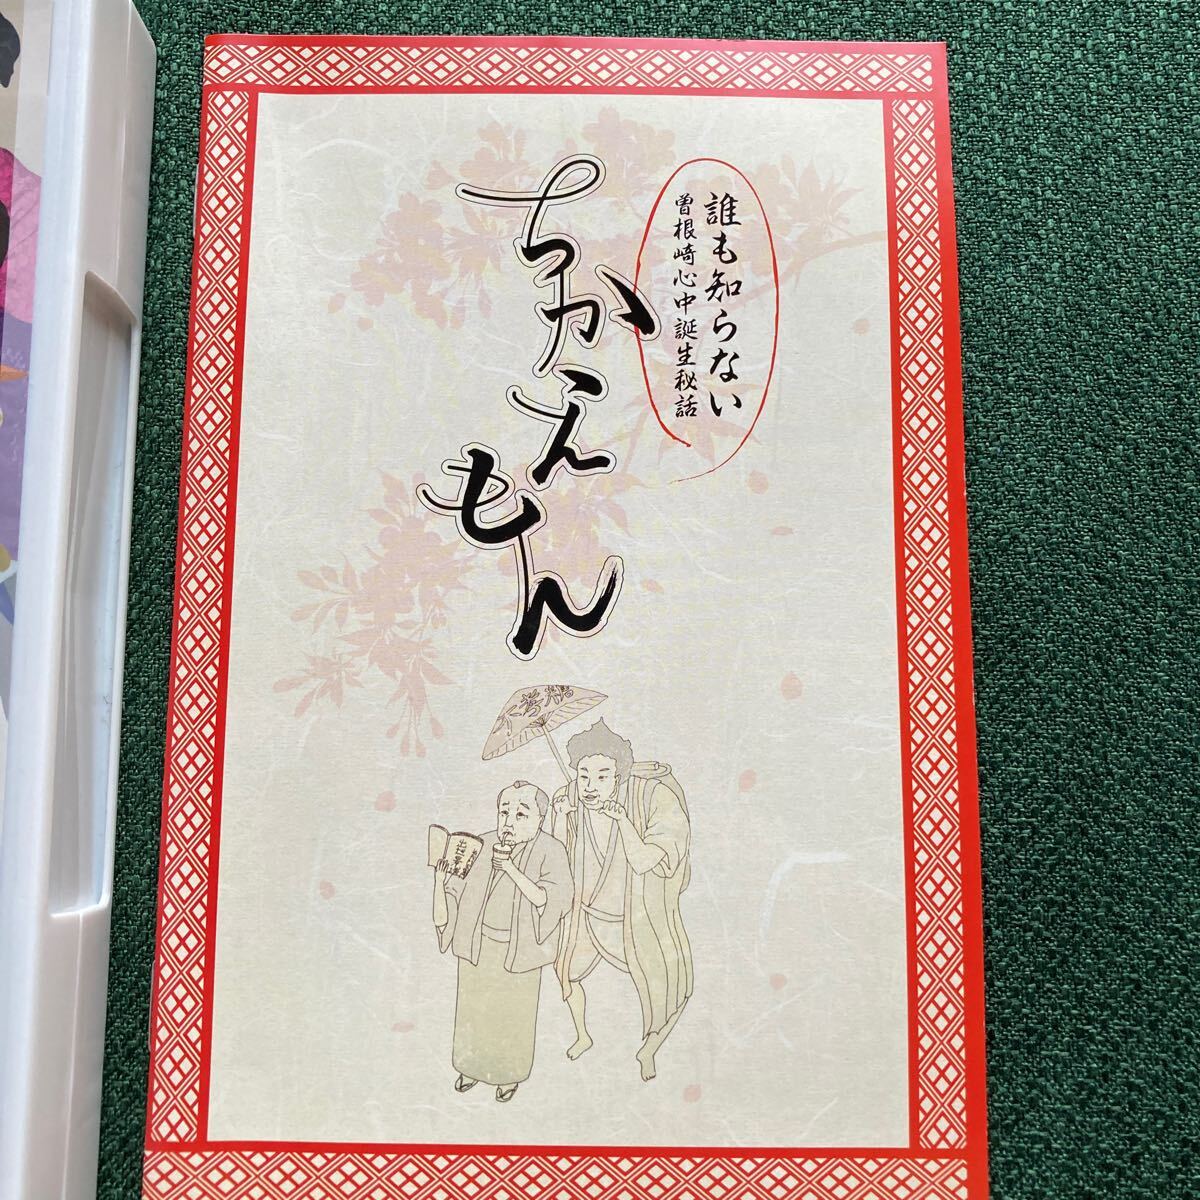 誰も知らない
曽根崎心中誕生秘話
ちかえもん
出世景清